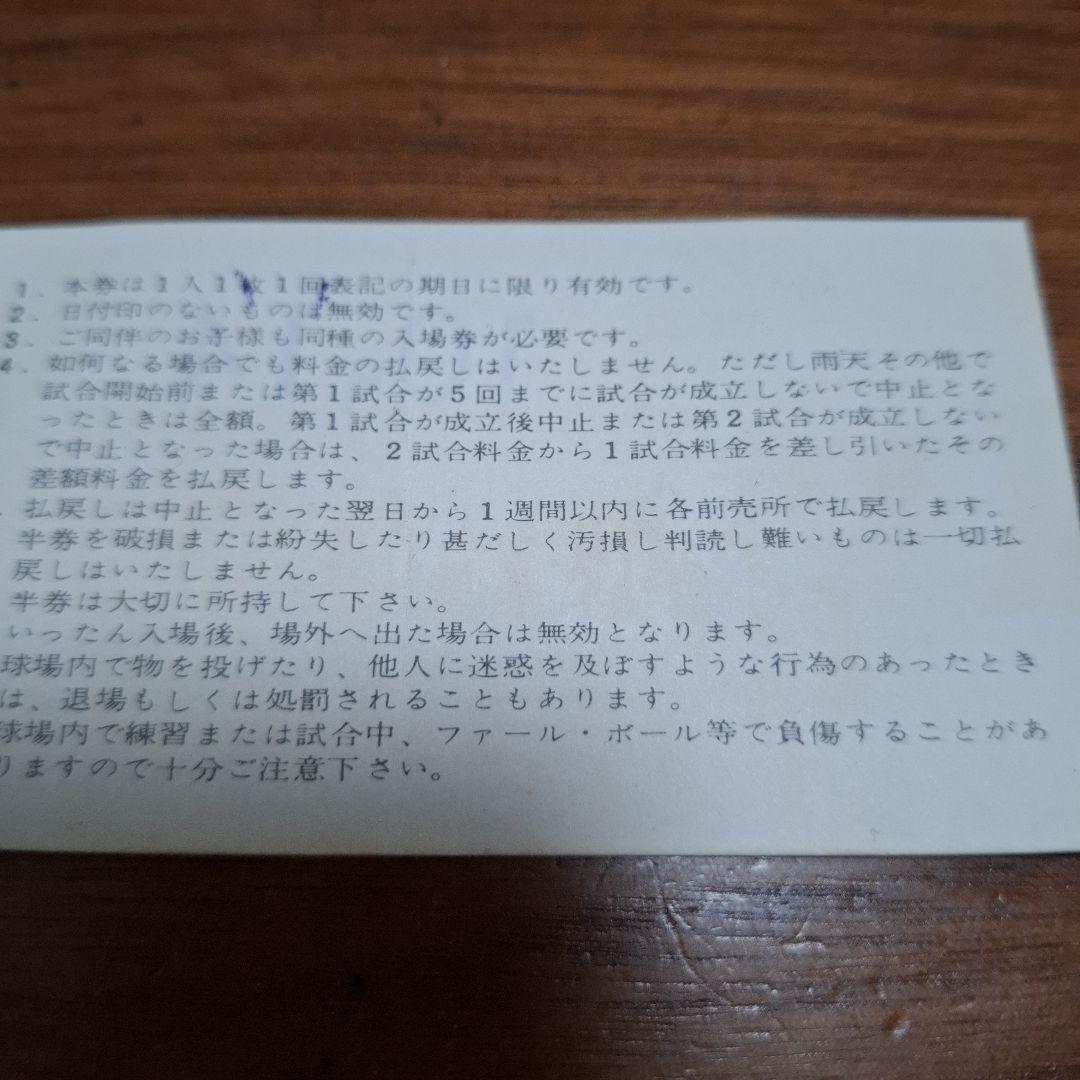 1．本券は1人1枚1回表記の期日に限り有効です。
2．日付印のないものは無効です。
3．ご同伴のお子様も同種の入場券が必要です。
4．如何なる場合でも料金の払戻しはいたしません。ただし雨天その他で
試合開始前または第1試合が5回までに試合が成立しないで中止とな
ったときは全額。第1試合が成立後中止または第2試合が成立しない
で中止となった場合は、2試合料金から1試合料金を差し引いたその
差額料金を払戻します。
．払戻しは中止となった翌日から1週間以内に各前売所で払戻します。
半券を破損または紛失したり甚だしく汚損し判読し難いものは一切払
戻しはいたしません。
半券は大切に所持して下さい。
いったん入場後、場外へ出た場合は無効となります。
球場内で物を投げたり、他人に迷惑を及ぼすような行為のあったとき
は、退場もしくは処罰されることもあります。
球場内で練習または試合中、ファール・ボール等で負傷することがあ
りますので十分ご注意下さい。